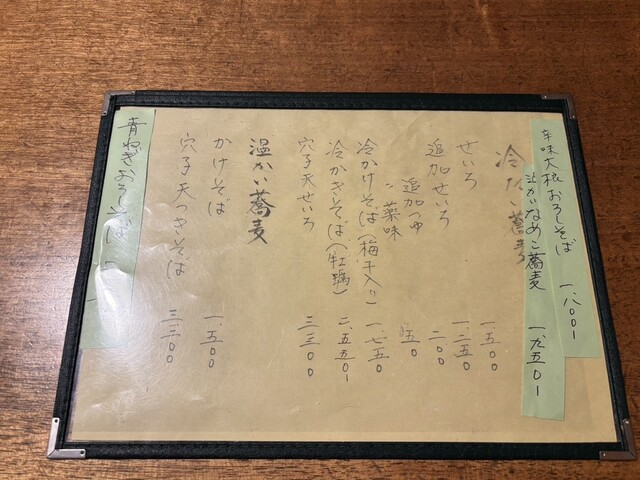 辛味大根おろしそば 一、八〇〇
温かいなめこ蕎麦 一、九五〇
冷たい蕎麦
せいろ 一、五〇〇
追加せいろ 一、二五〇
追加つゆ 二〇〇
〃 薬味 五〇
冷かけそば(梅干入り) 一、七五〇
冷かきそば(牡蠣) 二、五五〇
穴子天せいろ 三、三〇〇
温かい蕎麦
かけそば 一、五〇〇
穴子天つきそば 三、三〇〇
青ねぎおろしそば